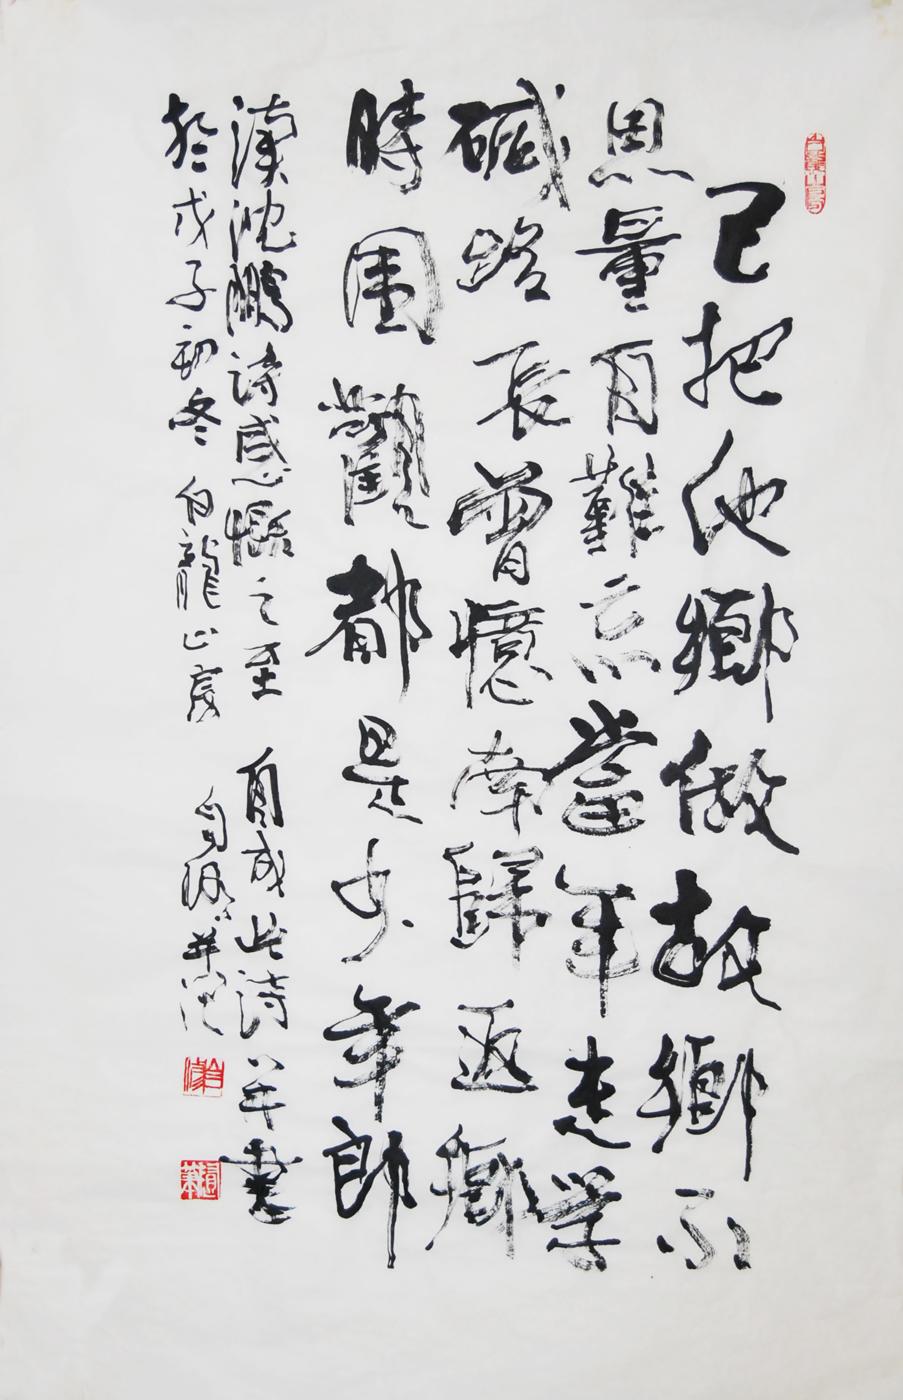 已把他鄉做故鄉不
思量自難忘當年走学
碱路長曾憶南歸返鄉
時圍觀都是少年郎
讀沈鵬詩感慨之至 自成此詩並書
於戊子初冬 白龍山房